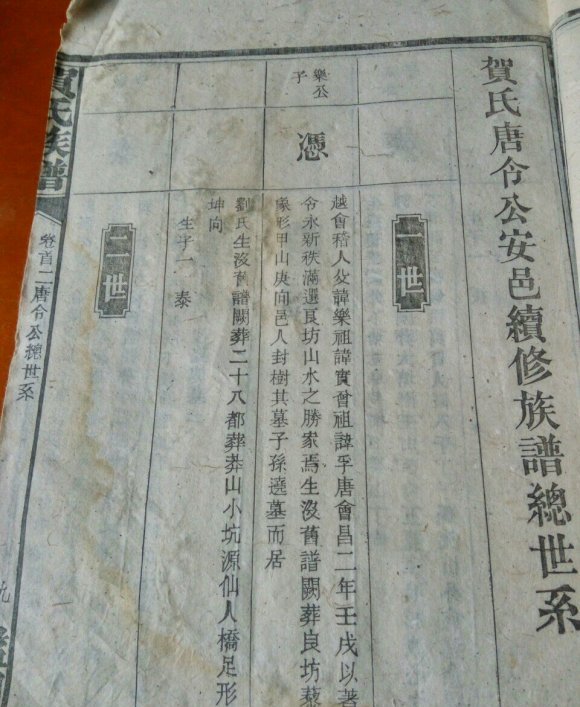 賀氏唐令公安邑續修族譜總世系
一世
樂公
子
憑
越會稽人父諱樂祖諱實曾祖諱孚唐會昌二年壬戌以著
令永新秩滿選良坊山水之勝家焉生沒舊譜闕葬良坊藜
象形甲山庚向邑人封樹其墓子孫遶墓而居
劉氏生沒舊譜闕葬二十八都葬莽山小坑源仙人橋足形
坤向
生子一 泰
二世
賀氏族譜
卷首二唐令公總世系
九